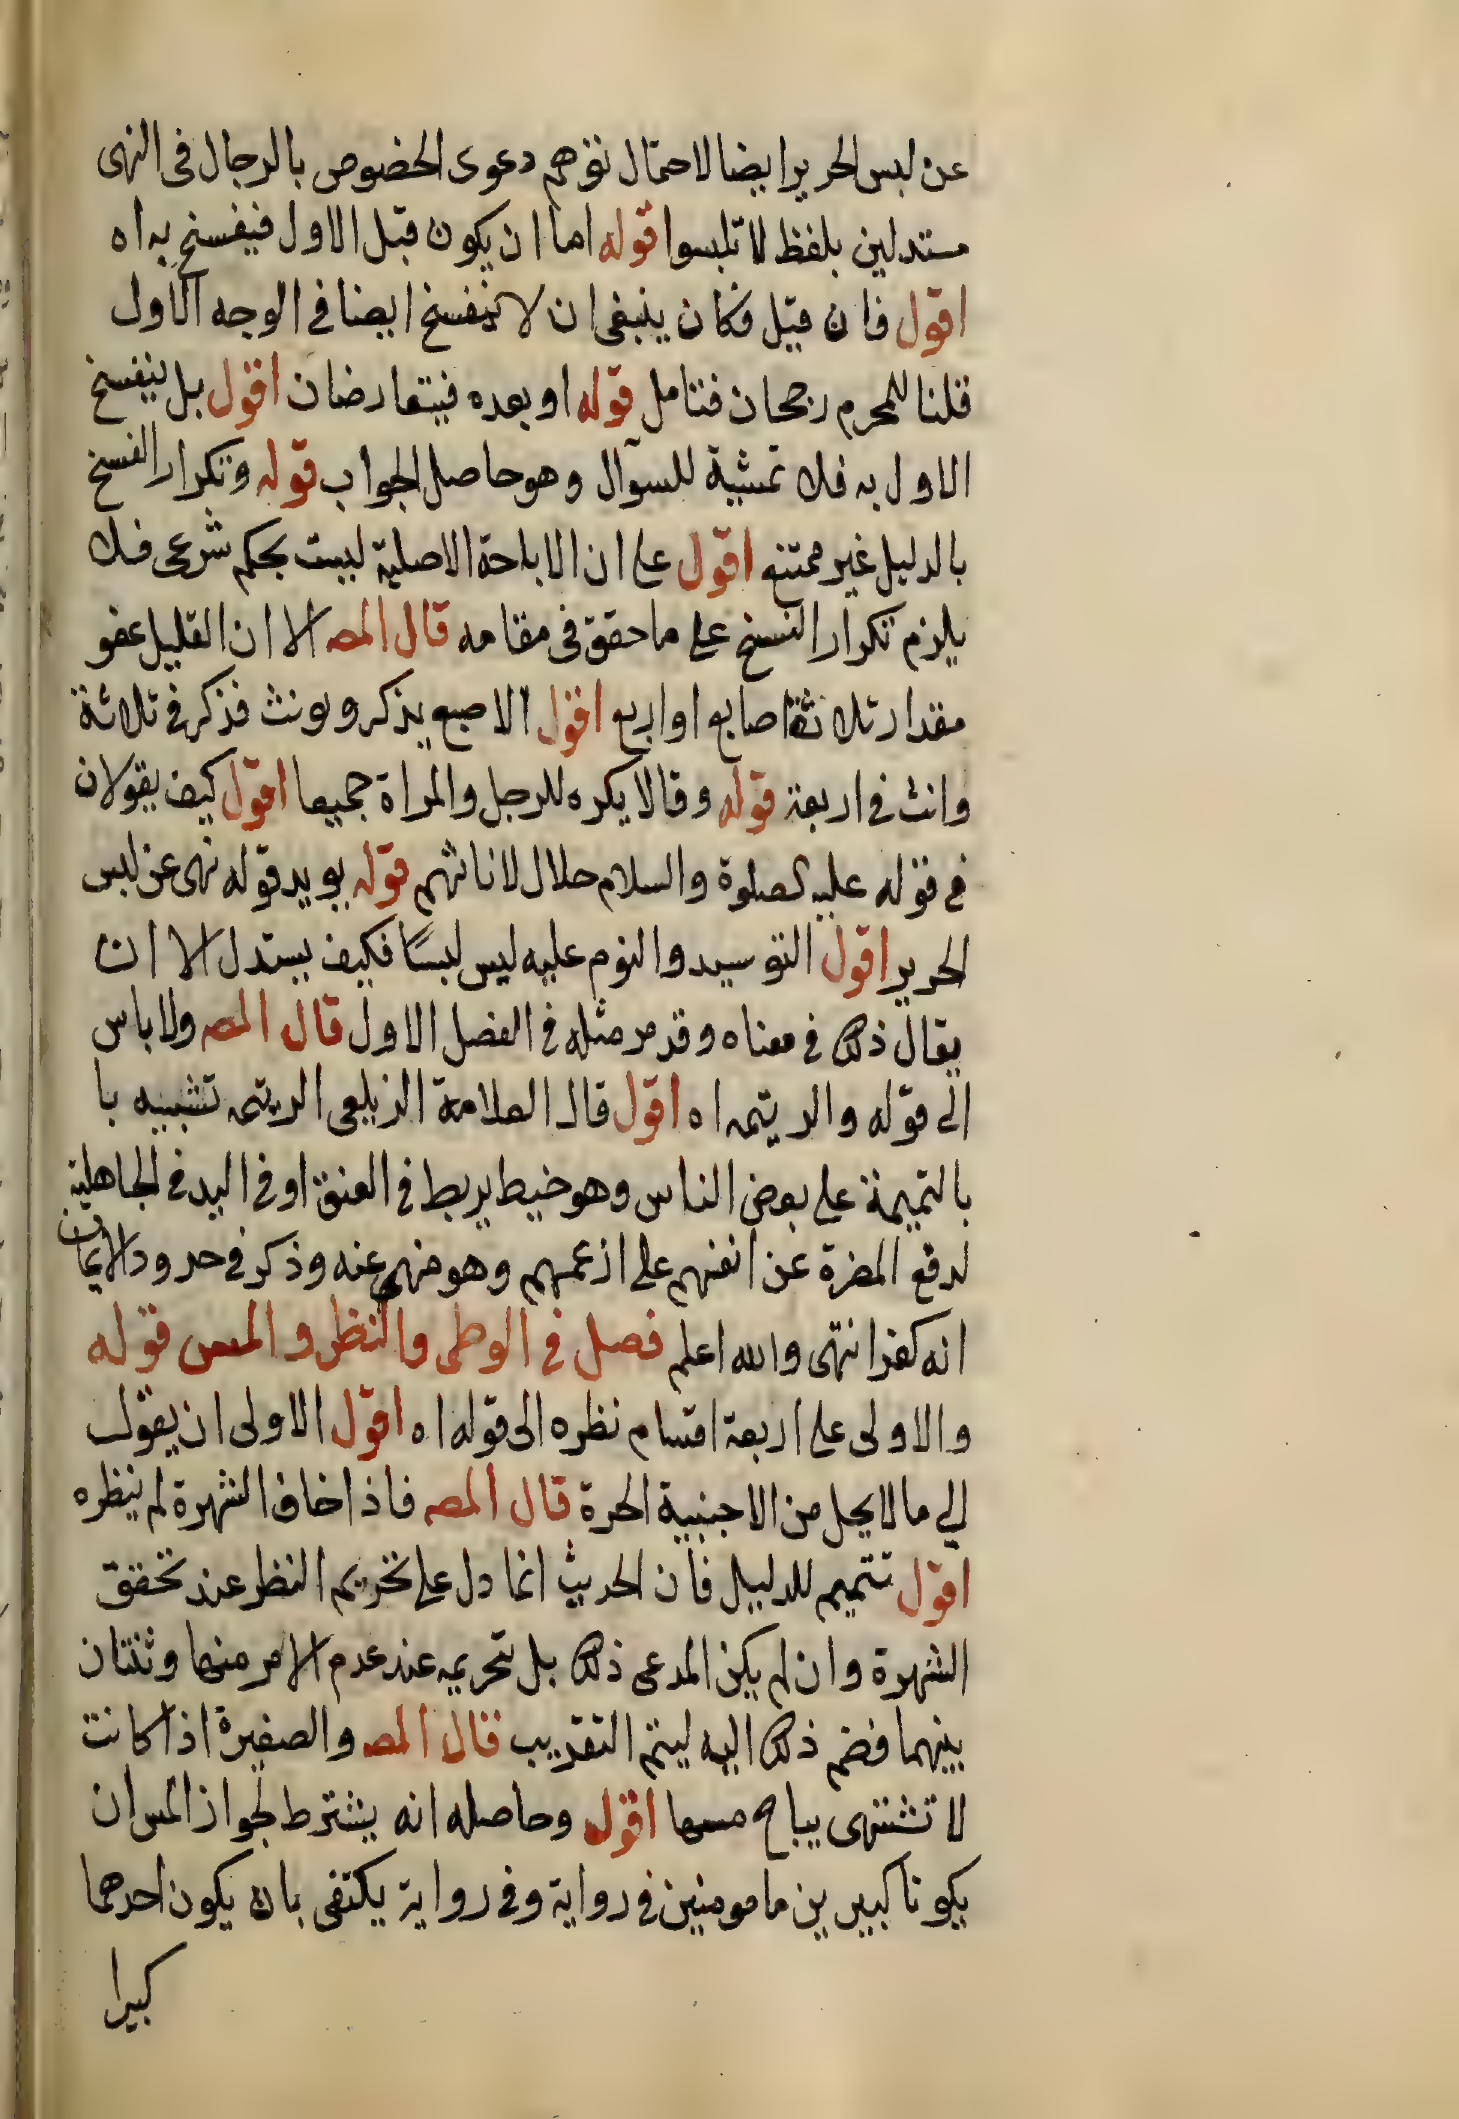 عن لبس الحرير ايضا لاحتمال توهم دعوى الخصوص بالرجال فى النهى
مستدلين بلفظ لا تلبسوا قوله اما ان يكون قبل الاول فيفسخ به اه
اقول فان قيل فكان ينبغى ان لا ينفسخ ايضا فى الوجه الاول
قلنا للمحرم رجحان فتامل قوله او بعده فيتعارضان اقول بل ينفسخ
الاول به فلا تمشية للسوآل وهو حاصل الجواب قوله وتكرار الفسخ
بالدليل غير ممتنع اقول على ان الاباحة الاصلية ليست بحكم شرعى فلا
يلزم تكرار النسخ على ما حقق فى مقامه قال المصـ الا ان القليل عفو
مقدار ثلاثة اصابع او اربع اقول الاصبع يذكر ويونث فذكر فى ثلاثة
وانث فى اربعة قوله وقالا يكره للرجل والمراة جميعا اقول كيف يقولان
فى قوله عليه الصلوة والسلام حلال لاناثهم قوله يويد قوله نهى عن لبس
الحرير اقول التوسيد والنوم عليه ليس لبسًا فكيف يستدل الا ان
يقال ذلك فى معناه وقد مر مثله فى الفصل الاول قال المصـ ولا باس
الى قوله والرتيمه اه اقول قال العلامة الزيلعى الرتيمه تشبيه با
بالتميمة على بعض الناس وهو خيط يربط فى العنق او فى اليد فى الجاهلية
لدفع المضرة عن انفسهم على ازعمهم وهو منهى عنه وذكر فى حدود الايمان
انه كفر انتهى والله اعلم فصل فى الوطى والنظر والمس قوله
والاولى على اربعة اقسام نظره الى قوله اه اقول الاولى ان يقول
الى ما لا يحل من الاجنبية الحرة قال المصـ فاذا خاف الشهوة لم ينظره
اقول تتميم للدليل فان الحديث انما دل على تحريم النظر عند تحقق
الشهوة وان لم يكن المدعى ذلك بل تحريمه عند عدم الامر منها وثنتان
بينهما فضم ذلك اليه ليتم التقريب قال المصـ والصغيرة اذا كانت
لا تشتهى يباح مسها اقول وحاصله انه يشترط لجواز المس ان
يكونا كبيرين مامومنين فى رواية وفى رواية يكتفى بان يكون احدهما
كبيرا